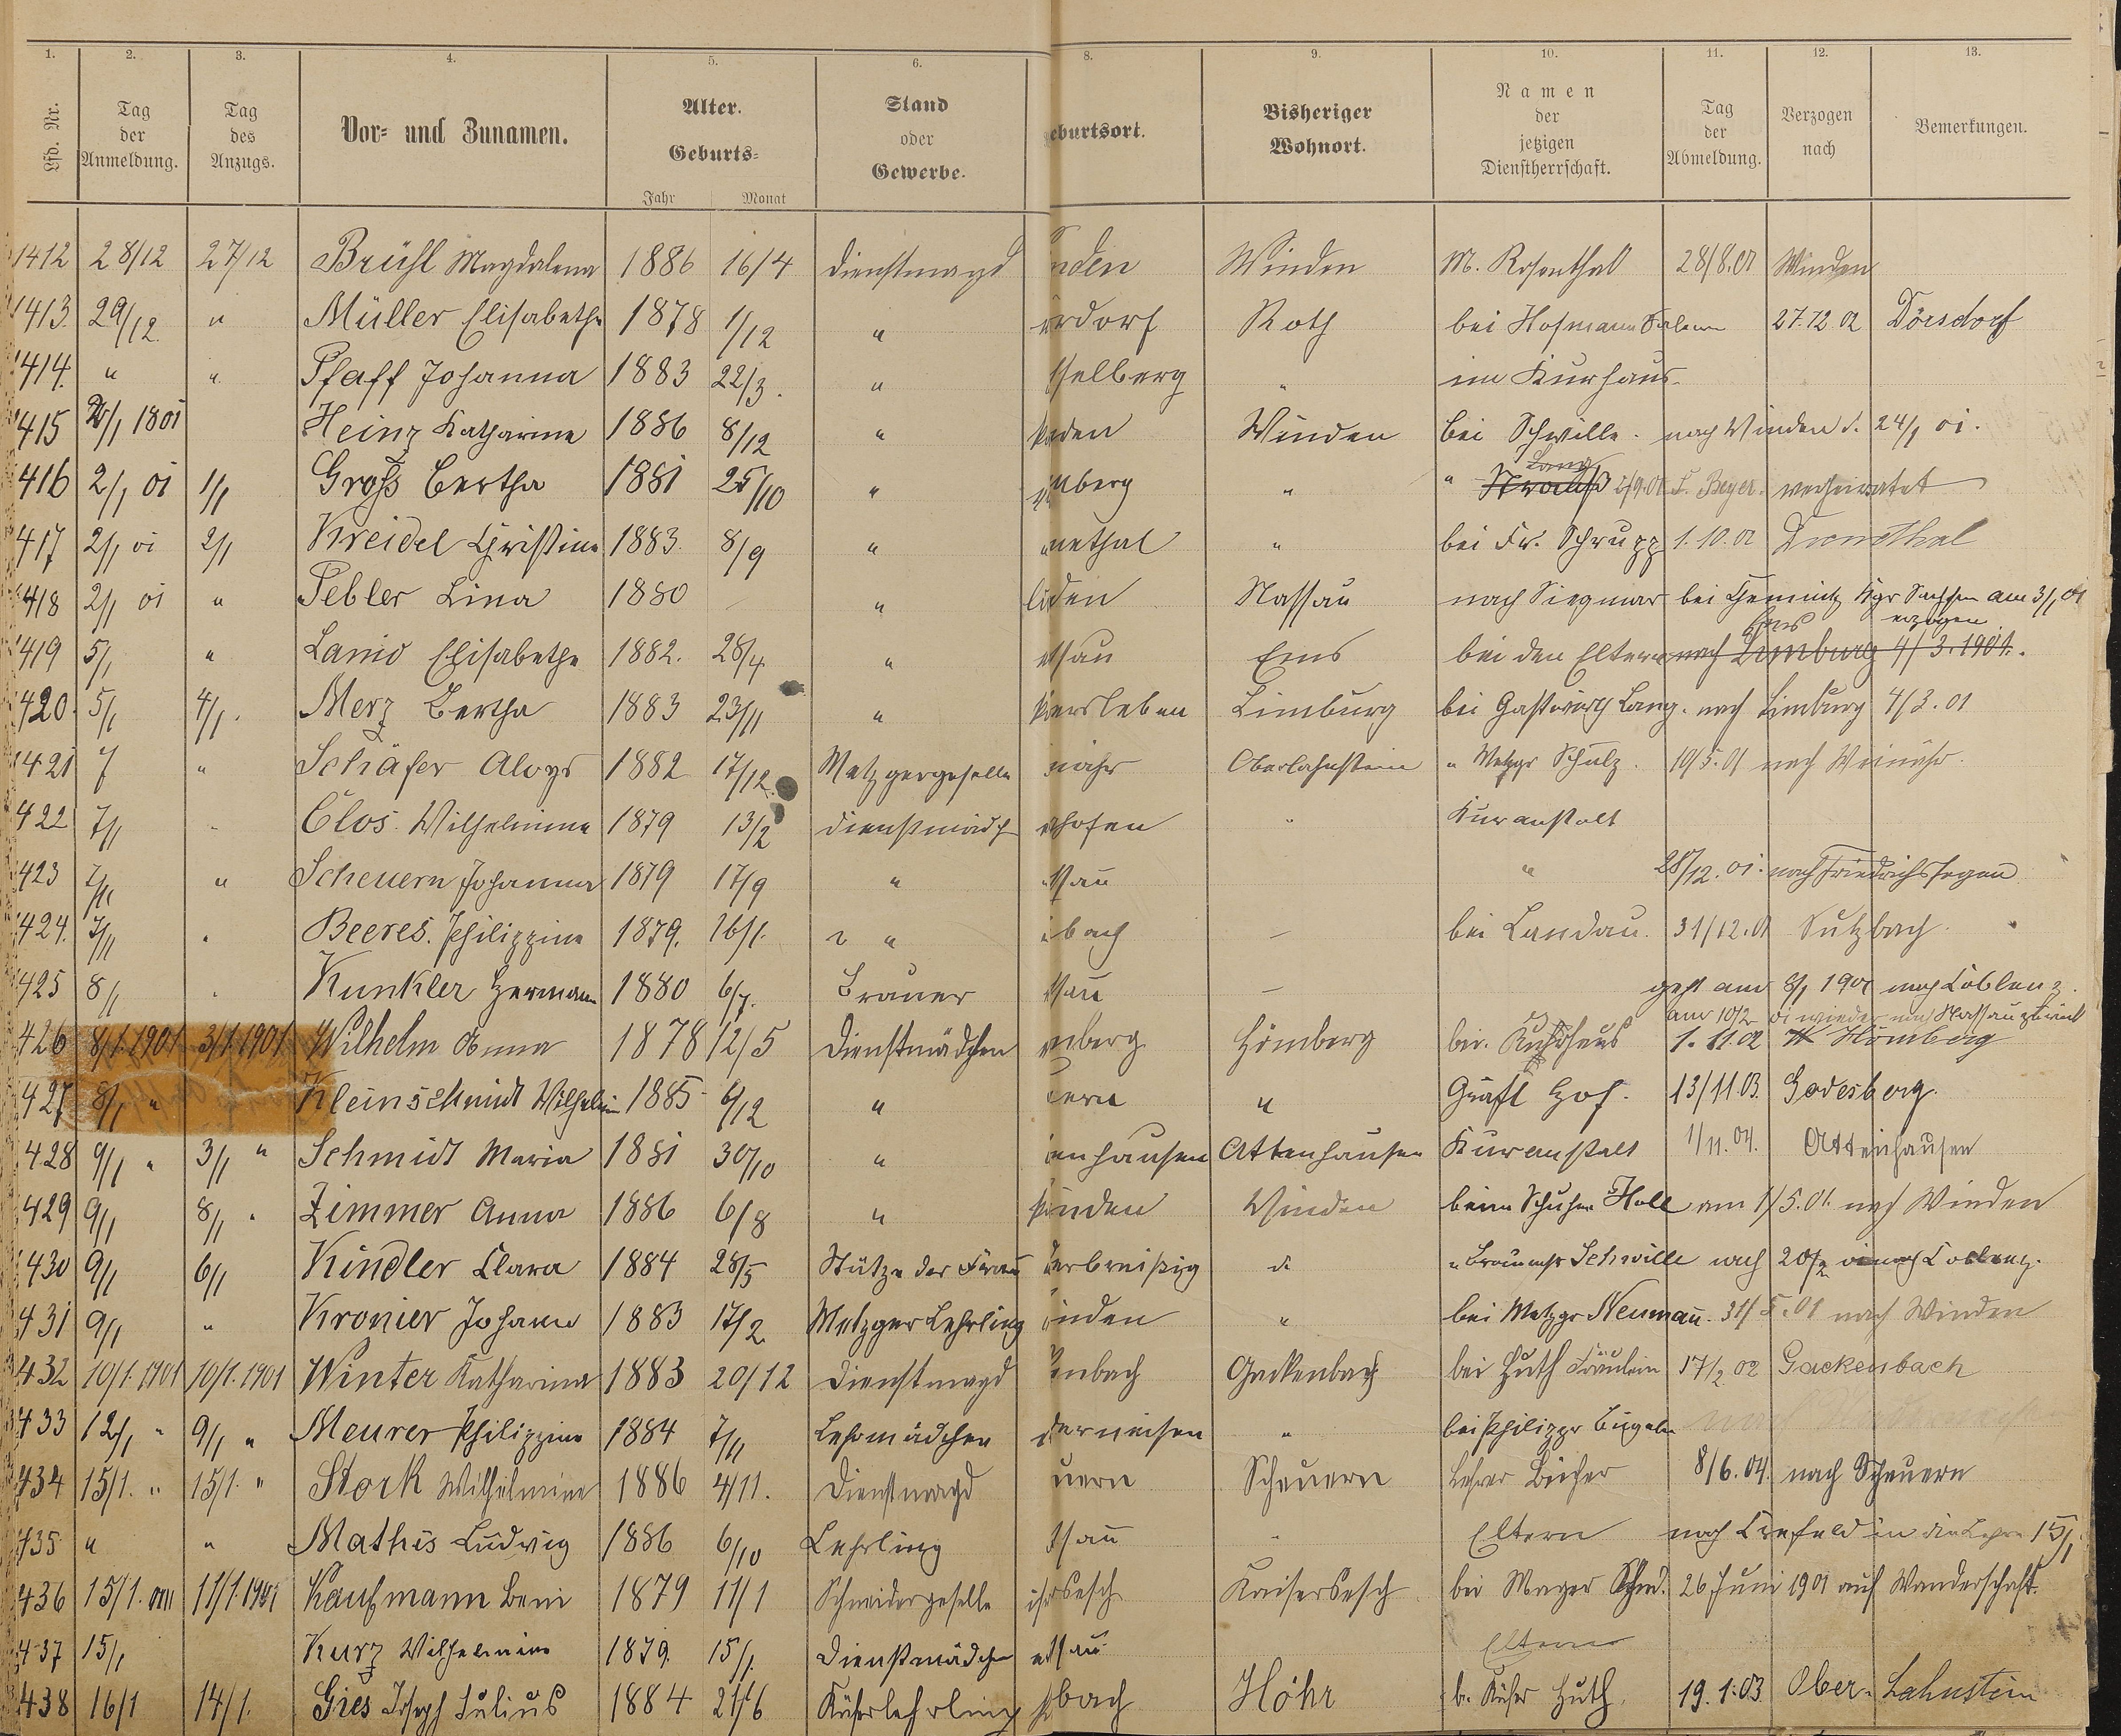 1. 2. 3. 4. 5. 6. 8. 9. 10. 11. 12. 13.
Lfd. Nr. Tag der Anmeldung. Tag des Anzugs. Vor- und Zunamen. Alter. Geburts- Jahr Monat Stand oder Gewerbe. eburtsort. Bisheriger Wohnort. Namen der jetzigen Dienstherrschaft. Tag der Abmeldung. Verzogen nach Bemerkungen.
1412 28/12 27/12 Brühl Magdalena 1886 16/4 Dienstmagd nden Winden M. Rosenthal 28/8.01 Winden
1413. 29/12. " Müller Elisabethe 1878 1/12 " rdorf Roth bei Hofmann 27.12 02 Dörsdorf
414. " " Pfaff Johanna 1883 22/3. " selberg " im Kurhaus.
415 1801 Heinz Katharine 1886 8/12 " nden Winden bei Schwille. nach Winden d. 24/1 01.
416 2/1 01 1/1 Groß Bertha 1881 25/10 " nberg " " Lang 2/9.01 Beyer. verheiratet
417 2/1 01 2/1 Kreidel Christine 1883. 8/9 " nethal " bei Fr. Schrupp 1.10.01 Dienethal
418 2/1 01 " Pebler Lina 1880 " den Nassau nach Siegmar bei Chemnitz Kgr Sachsen am 3/1 01
verzogen
419 5/1 " Lanio Elisabethe 1882. 28/4. " ssau Ems bei den Eltern nach Limburg 4/3.1901. Ems
420. 5/1 4/1. Merz Bertha 1883 23/11 " ersleben Limburg bei Gastwirth Lang. nach Limburg 4/3.01
421 7 " Schäfer Aloys 1882 17/12. Metzgergeselle nähr Oberlahnstein " Metzger Schulz. 19/5.01 nach Weinähr.
422 7/1 Clos. Wilhelmine 1879 13/2 Dienstmädch hofen " Kuranstalt
423 7/1 " Scheuern Johanna 1879 17/9 " ssau " 28/12.01. nach Friedrichssegen
424. 7/1 Beeres. Philippine 1879. 16/1. " bach — bei Landau. 31/12.01 Sulzbach.
425 8/1 Kunkler Hermann 1880 6/7. Brauer ssau — geht am 8/1 1901 nach Coblenz.
am 10/2 01 wieder nach Nassau zurück
426 8/1.1901 3/1.1901 Wilhelm Anna 1878 12/5 Dienstmädchen mberg Hömberg bei. Kurhaus 1.11.02 Hömberg
427 8/1 " Kleinschmidt Wilhelmin 1885 6/12 " ern " Gräfl Hof. 13/11.03. Godesberg.
428 9/1 " 3/1 " Schmidt Maria 1881 30/10 " enhausen Attenhausen Kuranstalt 1/11.04. Attenhausen
429 9/1 8/1 " Zimmer Anna 1886 6/8 " inden Winden beim Schuhm Holl am 1/5.01. nach Winden
430 9/1 6/1 Kindler Clara 1884 28/5 Stütze der Frau erbreisig " Schwille nach 20/2 01 nach Coblenz.
431 9/1 " Kronier Johann 1883 17/2 Metzger Lehrling inden " bei Metzgr Neumann. 31/5.01 nach Winden
432 10/1.1901 10/1.1901 Winter Katharina 1883 20/12 Dienstmagd enbach Gackenbach bei Huth Fräulein 17/2 02 Gackenbach
433 12/1 " 9/1 " Meurer Philippine 1884 7/11 Lehrmädchen derneisen " bei Philippi Bügeln
434 15/1. " 15/1. " Stork Wilhelmine 1886 4/11. Dienstmagd uern Scheuern Lehrer Bücher 8/6.04. nach Scheuern
435 " " Mathis Ludwig 1886 6/10 Lehrling sau " Eltern nach Crefeld in die Lehre 15/1
436 15/1. 11/1.1901 Kaufmann Beni 1879 11/1 Schneidergeselle sesch Kaisersesch bei Mager Schnd. 26 Juni 1901 auf Wanderschaft.
437 15/1 Kurz Wilhelmine 1879. 15/1. Dienstmädchen ssau. Eltern
438 16/1 14/1. Gies Joseph Julius 1884 21/6 Küferlehrling bach Höhr b. Küfer Huth. 19.1.03 Ober-Lahnstein